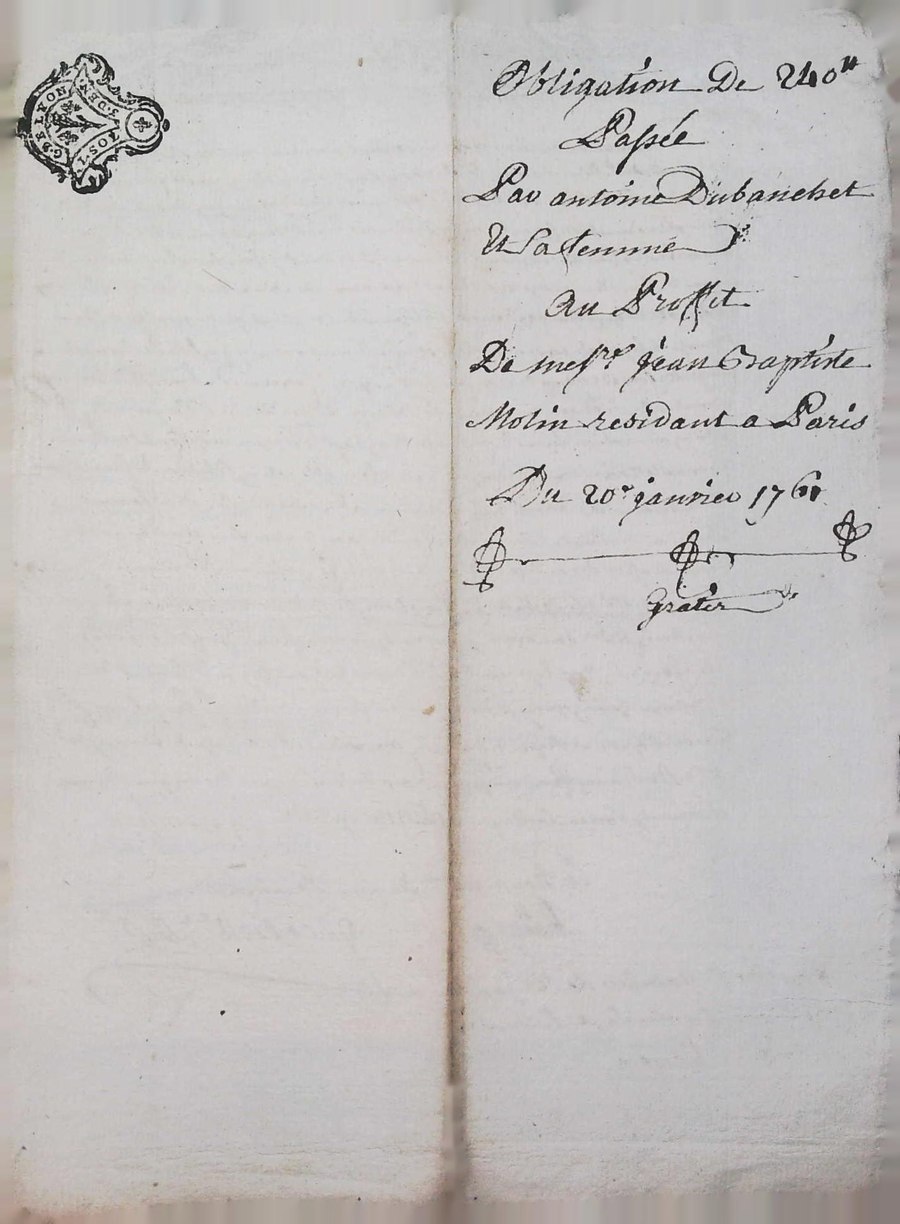 G. DE LYON
I. SOL. S. DEN.
Obligation De 240ᵗᵗ
Passée
Par antoine Dubanchet
Et Sa femme
Au Proffit
De messʳᵉ jean Baptiste
Molin residant a Paris
Du 20ᵉ janvier 1761